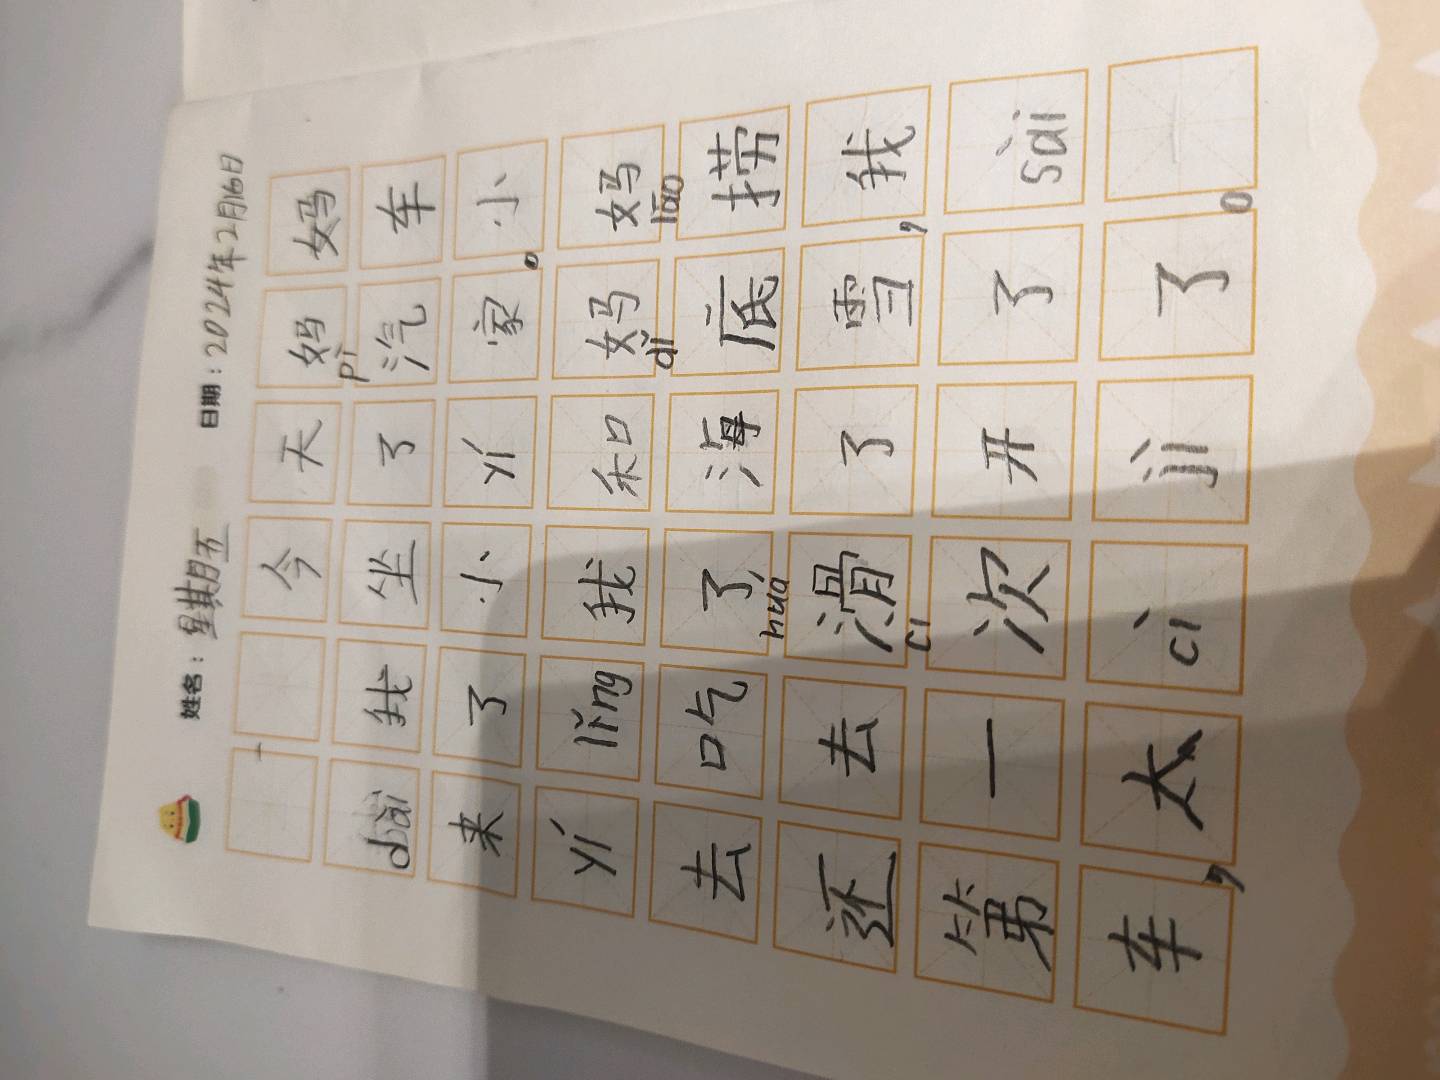 姓名：星期五 日期：2024年2月16日
今天妈妈
pì
dài我坐了汽车
来了小yí家。小
yí lǐng我和妈妈
dǐ lāo
去吃了海底捞
huá
还去滑了雪，我
cì
第一次开了sài
车，太cì jī了。